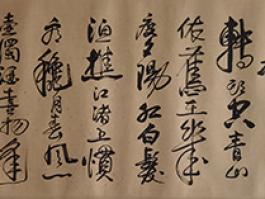 轉頭空青山
依舊在幾
度夕陽紅白髮
漁樵江渚上慣
看秋月春風
壺濁酒喜相逢